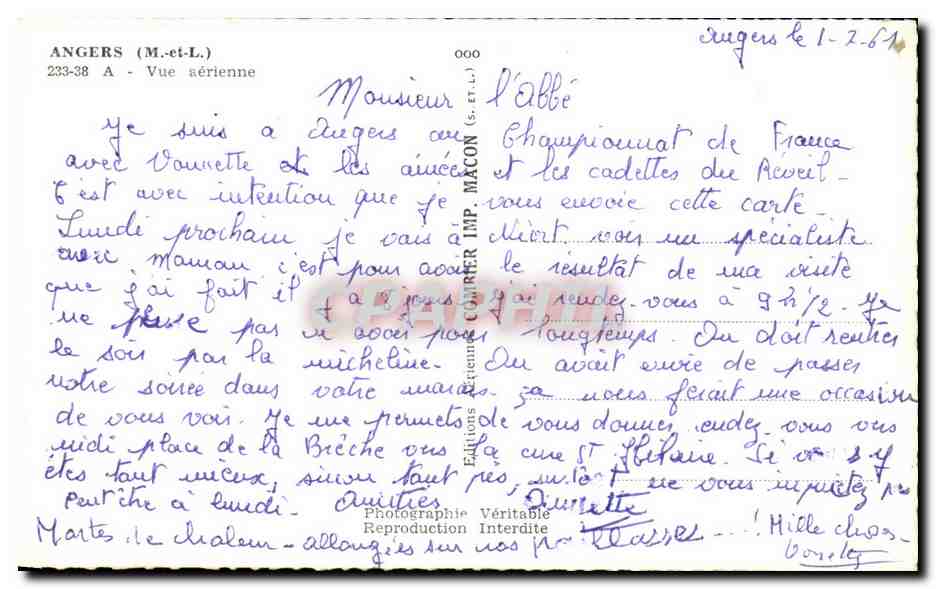 Angers le 1-7-61
ANGERS (M.-et-L.)
233-38 A - Vue aérienne
000
Monsieur l'abbé
Je suis à Angers au Championnat de France
avec et les ainées et les cadettes du Réveil -
C'est avec intention que je vous envoie cette carte -
Lundi prochain je vais à Niort voir un spécialiste
avec Maman c'est pour avoir le résultat de ma visite
que j'ai fait il y a 8 jours j'ai rendez-vous à 9h 1/2. Je
ne pense pas en avoir pour longtemps. On doit rentrer
le soir par la micheline. On avait envie de passer
notre soirée dans votre marais. ça nous ferait une occasion
de vous voir. Je me permets de vous donner rendez-vous vers
midi place de la Brèche vers la rue St Hilaire. Si vous y
êtes tant mieux, sinon tant pis, surtout ne vous inquiétez pas
Peut être à lundi. Amitiés
Mortes de chaleur - allongées sur nos ! Mille choses
Editions Aériennes COMBIER IMP. MACON (S. ET L.)
Photographie Véritable
Reproduction Interdite
CPAPHIL